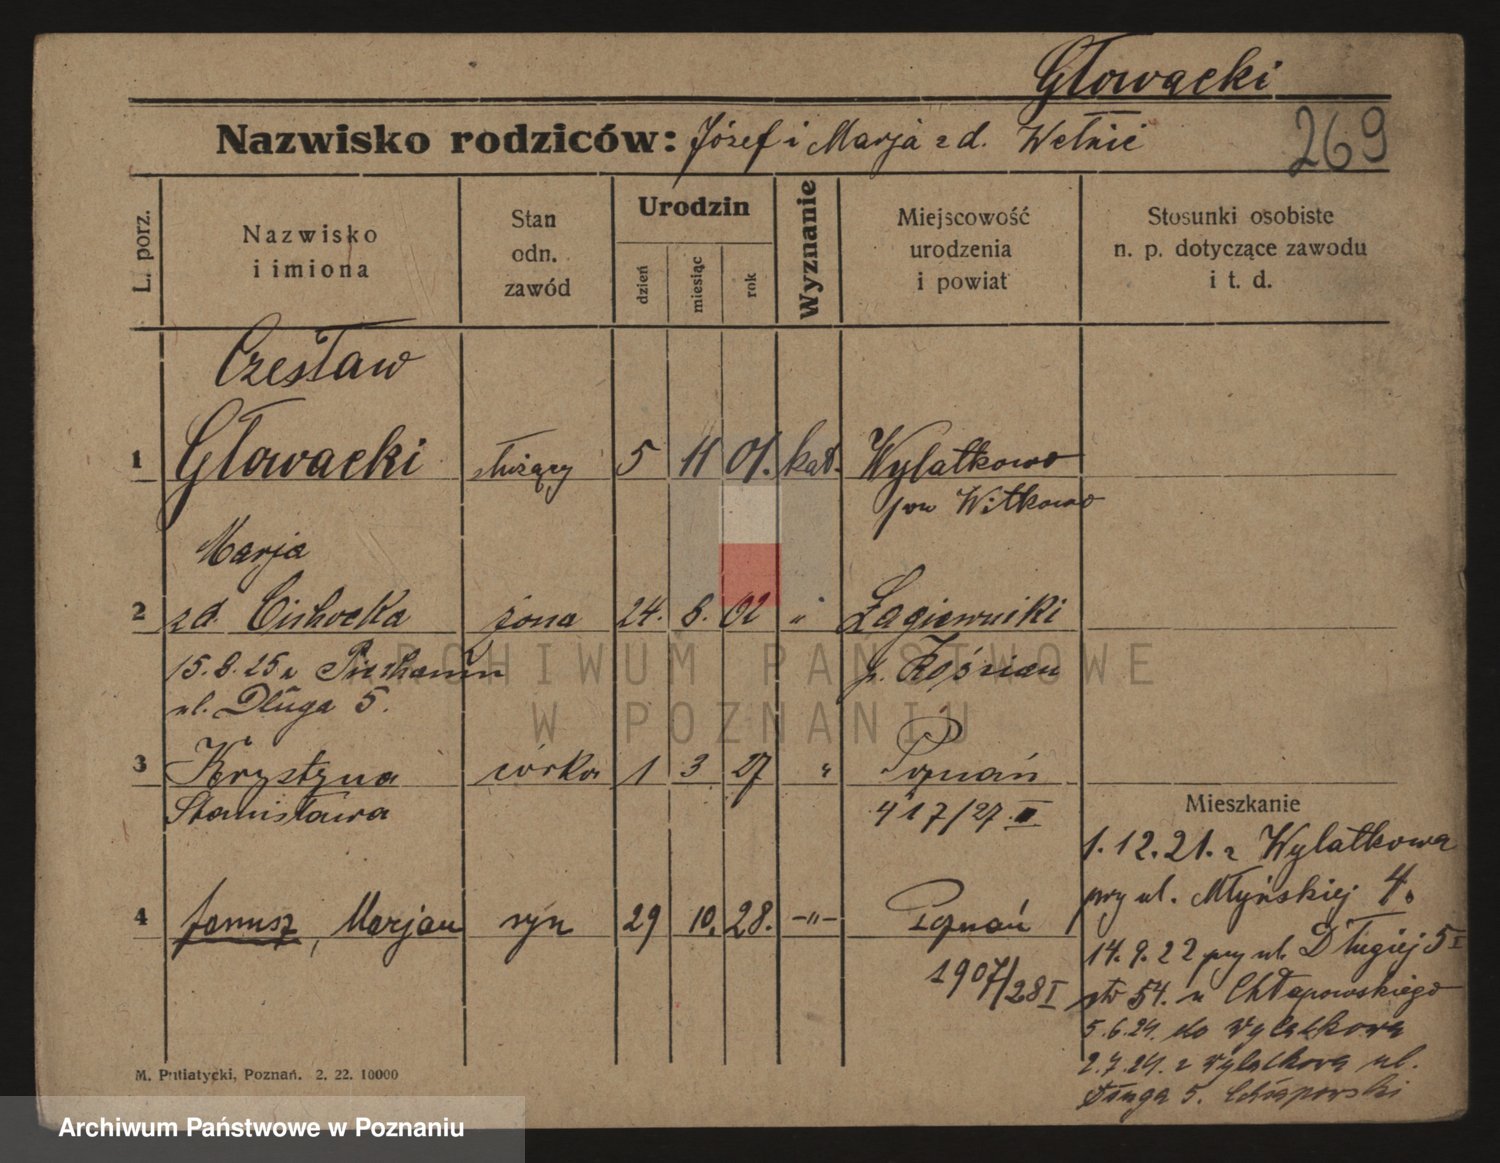 Głowacki
Nazwisko rodziców: Józef i Marja z d. Wełnic
269
L. porz.
Nazwisko
i imiona
Stan
odn.
zawód
Urodzin
dzień
miesiąc
rok
Wyznanie
Miejscowość
urodzenia
i powiat
Stosunki osobiste
n. p. dotyczące zawodu
i t. d.
Czesław
1 Głowacki służący 5 11 01. kat. Wylatkowo
pow Witkowo
Marja
2 z d. Cichocka żona 24. 8. 02 " Łagiewniki
p. Kościan
15.8.25 z
ul. Długa 5.
3 Krystyna córka 1 3 27 " Poznań
Stanisława 417/27 II
4 Janusz, Marjan syn 29 10. 28. -"- Poznań
1907/28 I
Mieszkanie
1.12.21. z Wylatkowa
przy ul. Młyńskiej 4.
14.9.22 przy ul. Długiej 5 I
str 54. u Chłapowskiego
5.6.24. do Wylatkowa
2.7.24. z Wylatkowa ul.
Długa 5. Chłapowski
M. Putiatycki, Poznań. 2. 22. 10000
ARCHIWUM PAŃSTWOWE
W POZNANIU
Archiwum Państwowe w Poznaniu